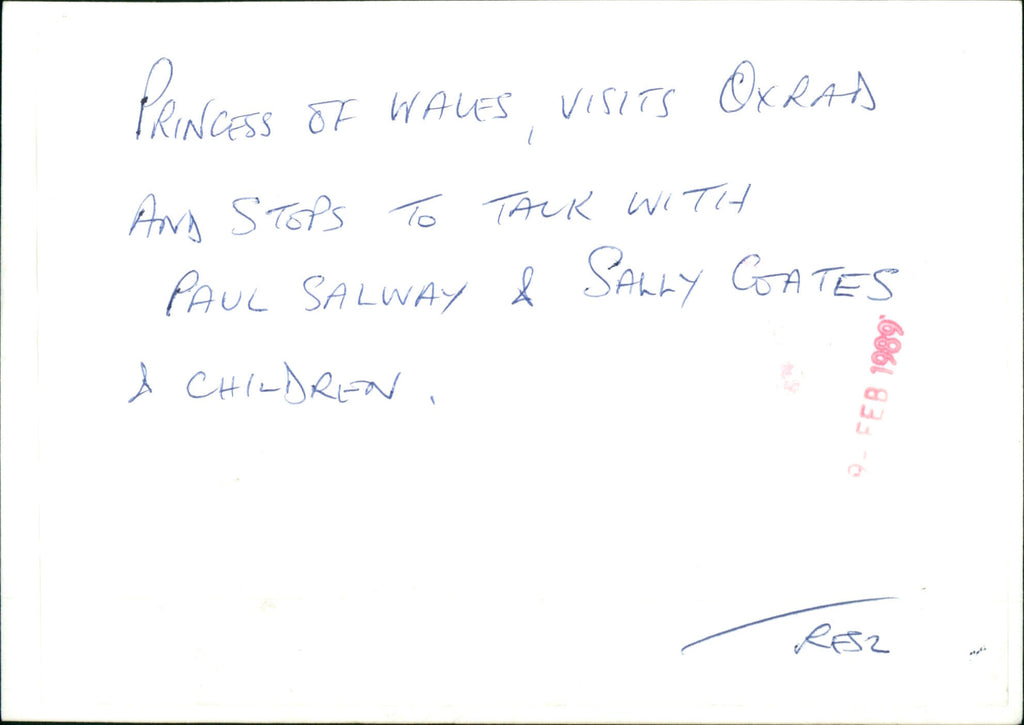 PRINCESS OF WALES, VISITS OXRAD
AND STOPS TO TALK WITH
PAUL SALWAY & SALLY COATES
& CHILDREN.
9 - FEB 1989